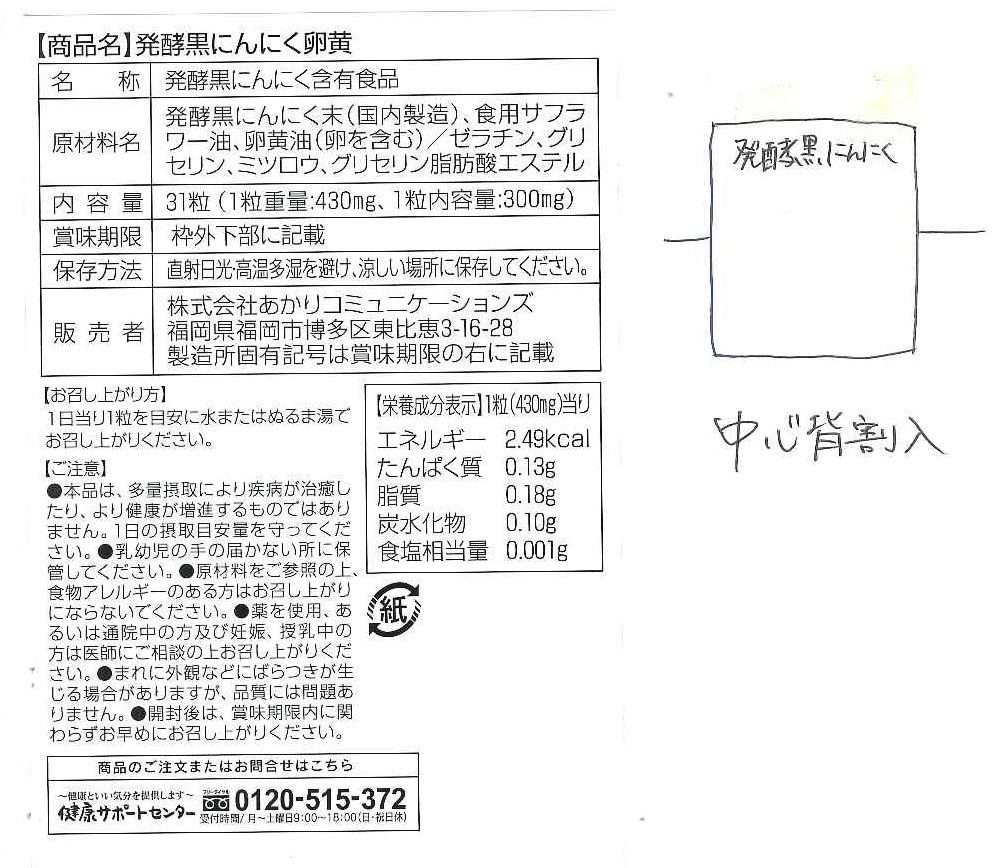 【商品名】発酵黒にんにく卵黄
名称 発酵黒にんにく含有食品
原材料名 発酵黒にんにく末(国内製造)、食用サフラ
ワー油、卵黄油(卵を含む)／ゼラチン、グリ
セリン、ミツロウ、グリセリン脂肪酸エステル
内容量 31粒(1粒重量:430mg、1粒内容量:300mg)
賞味期限 枠外下部に記載
保存方法 直射日光・高温多湿を避け、涼しい場所に保存してください。
販売者 株式会社あかりコミュニケーションズ
福岡県福岡市博多区東比恵3-16-28
製造所固有記号は賞味期限の右に記載
【お召し上がり方】
1日当り1粒を目安に水またはぬるま湯で
お召し上がりください。
【ご注意】
●本品は、多量摂取により疾病が治癒し
たり、より健康が増進するものではあり
ません。1日の摂取目安量を守ってくだ
さい。●乳幼児の手の届かない所に保
管してください。●原材料をご参照の上、
食物アレルギーのある方はお召し上がり
にならないでください。●薬を使用、あ
るいは通院中の方及び妊娠、授乳中の
方は医師にご相談の上お召し上がりくだ
さい。●まれに外観などにばらつきが生
じる場合がありますが、品質には問題あ
りません。●開封後は、賞味期限内に関
わらずお早めにお召し上がりください。
【栄養成分表示】1粒(430mg)当り
エネルギー 2.49kcal
たんぱく質 0.13g
脂質 0.18g
炭水化物 0.10g
食塩相当量 0.001g
紙
商品のご注文またはお問合せはこちら
～健康といい気分を提供します～
健康サポートセンター
フリーダイヤル
0120-515-372
受付時間/月～土曜日9:00～18:00(日・祝日休)
発酵黒にんにく
中心背割入